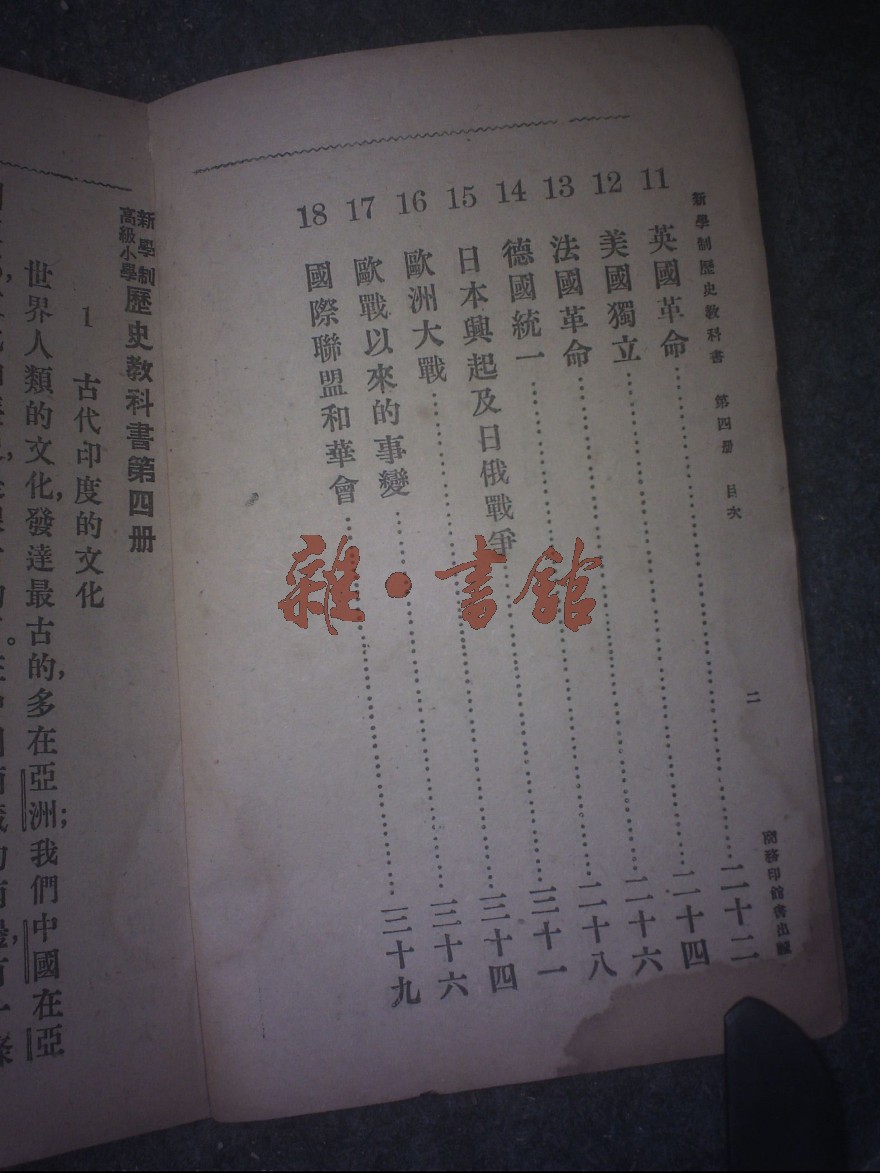 新學制歷史教科書 第四册 目次 二 商務印書館出版
11 英國革命……二十二
12 美國獨立……二十四
13 法國革命……二十六
14 德國統一……二十八
15 日本興起及日俄戰爭……三十一
16 歐洲大戰……三十四
17 歐戰以來的事變……三十六
18 國際聯盟和華會……三十九
新學制高級小學歷史教科書第四册
1 古代印度的文化
世界人類的文化,發達最古的,多在亞洲;我們中國在亞
雜·書館